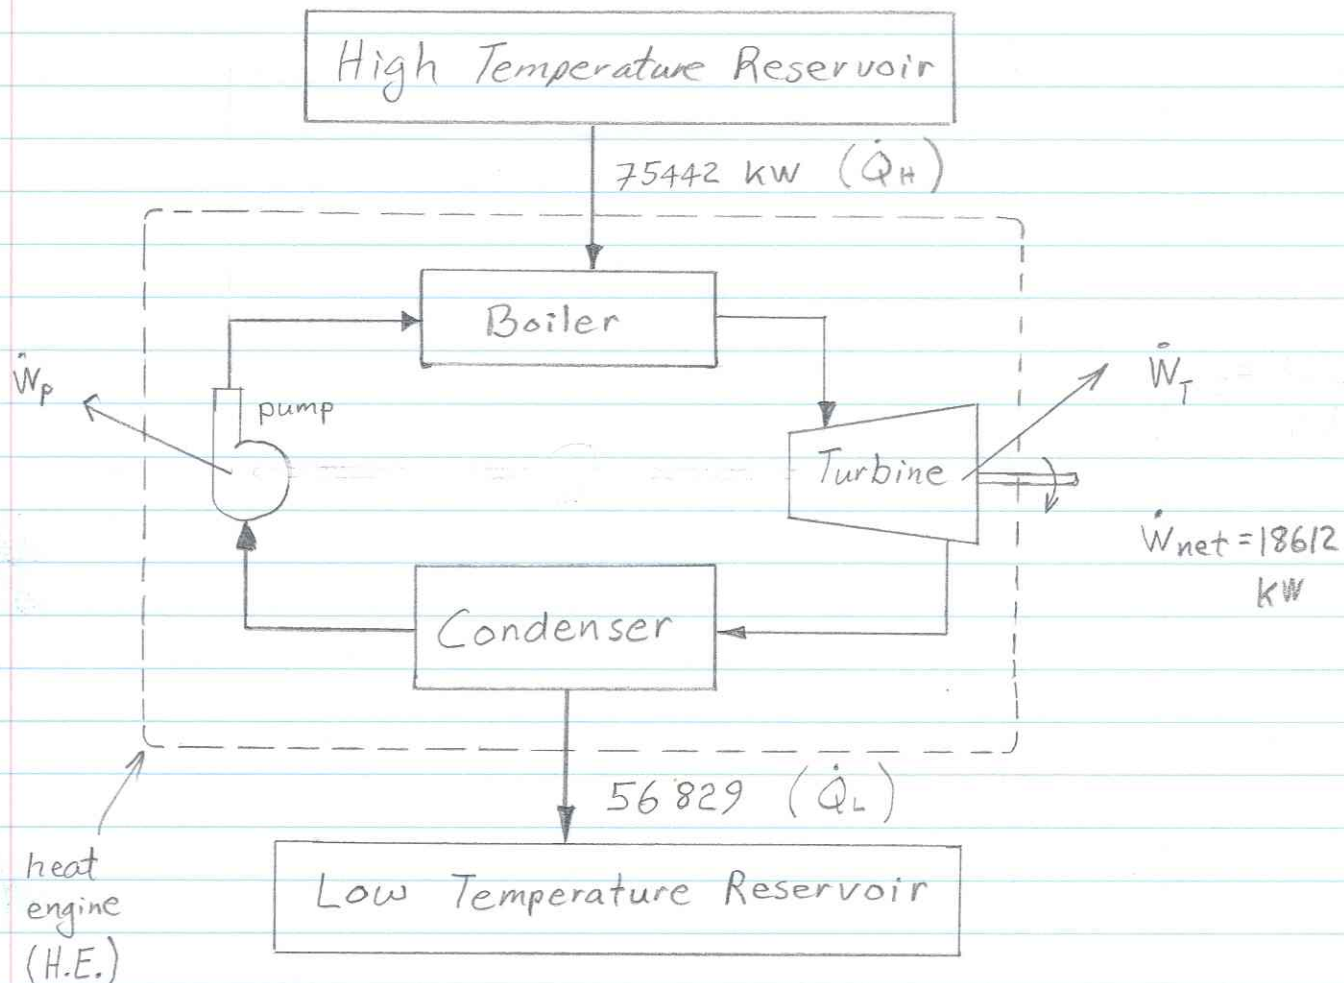 High Temperature Reservoir
75442 kW (Q̇H)
Boiler
Ẇp
pump
ẆT
Turbine
Ẇnet = 18612
kW
Condenser
56829 (Q̇L)
heat
engine
(H.E.)
Low Temperature Reservoir